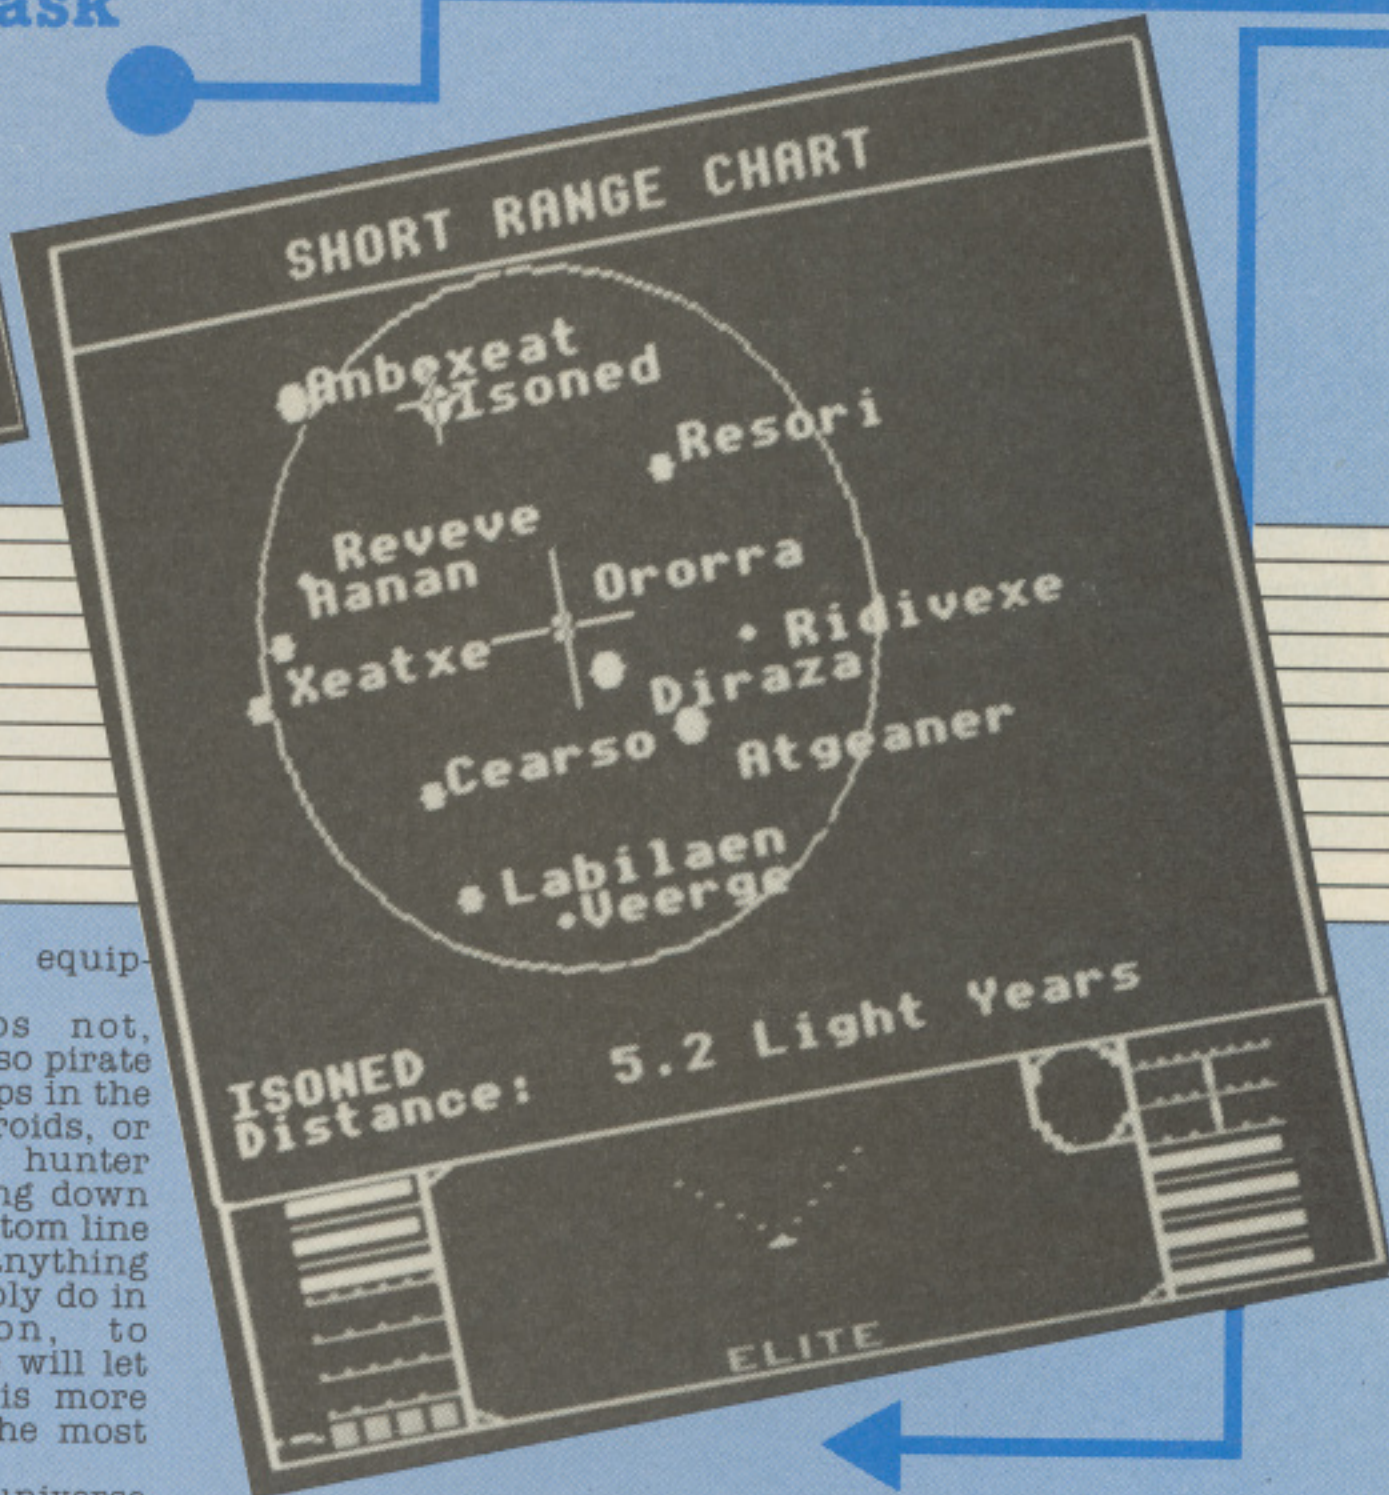 ask
SHORT RANGE CHART
Anbexeat
Isoned
Resori
Reveve
Aanan
Ororra
Ridivexe
Xeatxe
Diraza
Cearso
Atgeaner
Labilaen
Veerge
ISONED
Distance: 5.2 Light Years
ELITE
equip-
not,
so pirate
in the
or
hunter
down
line
do in
to
will let
is more
most
universe